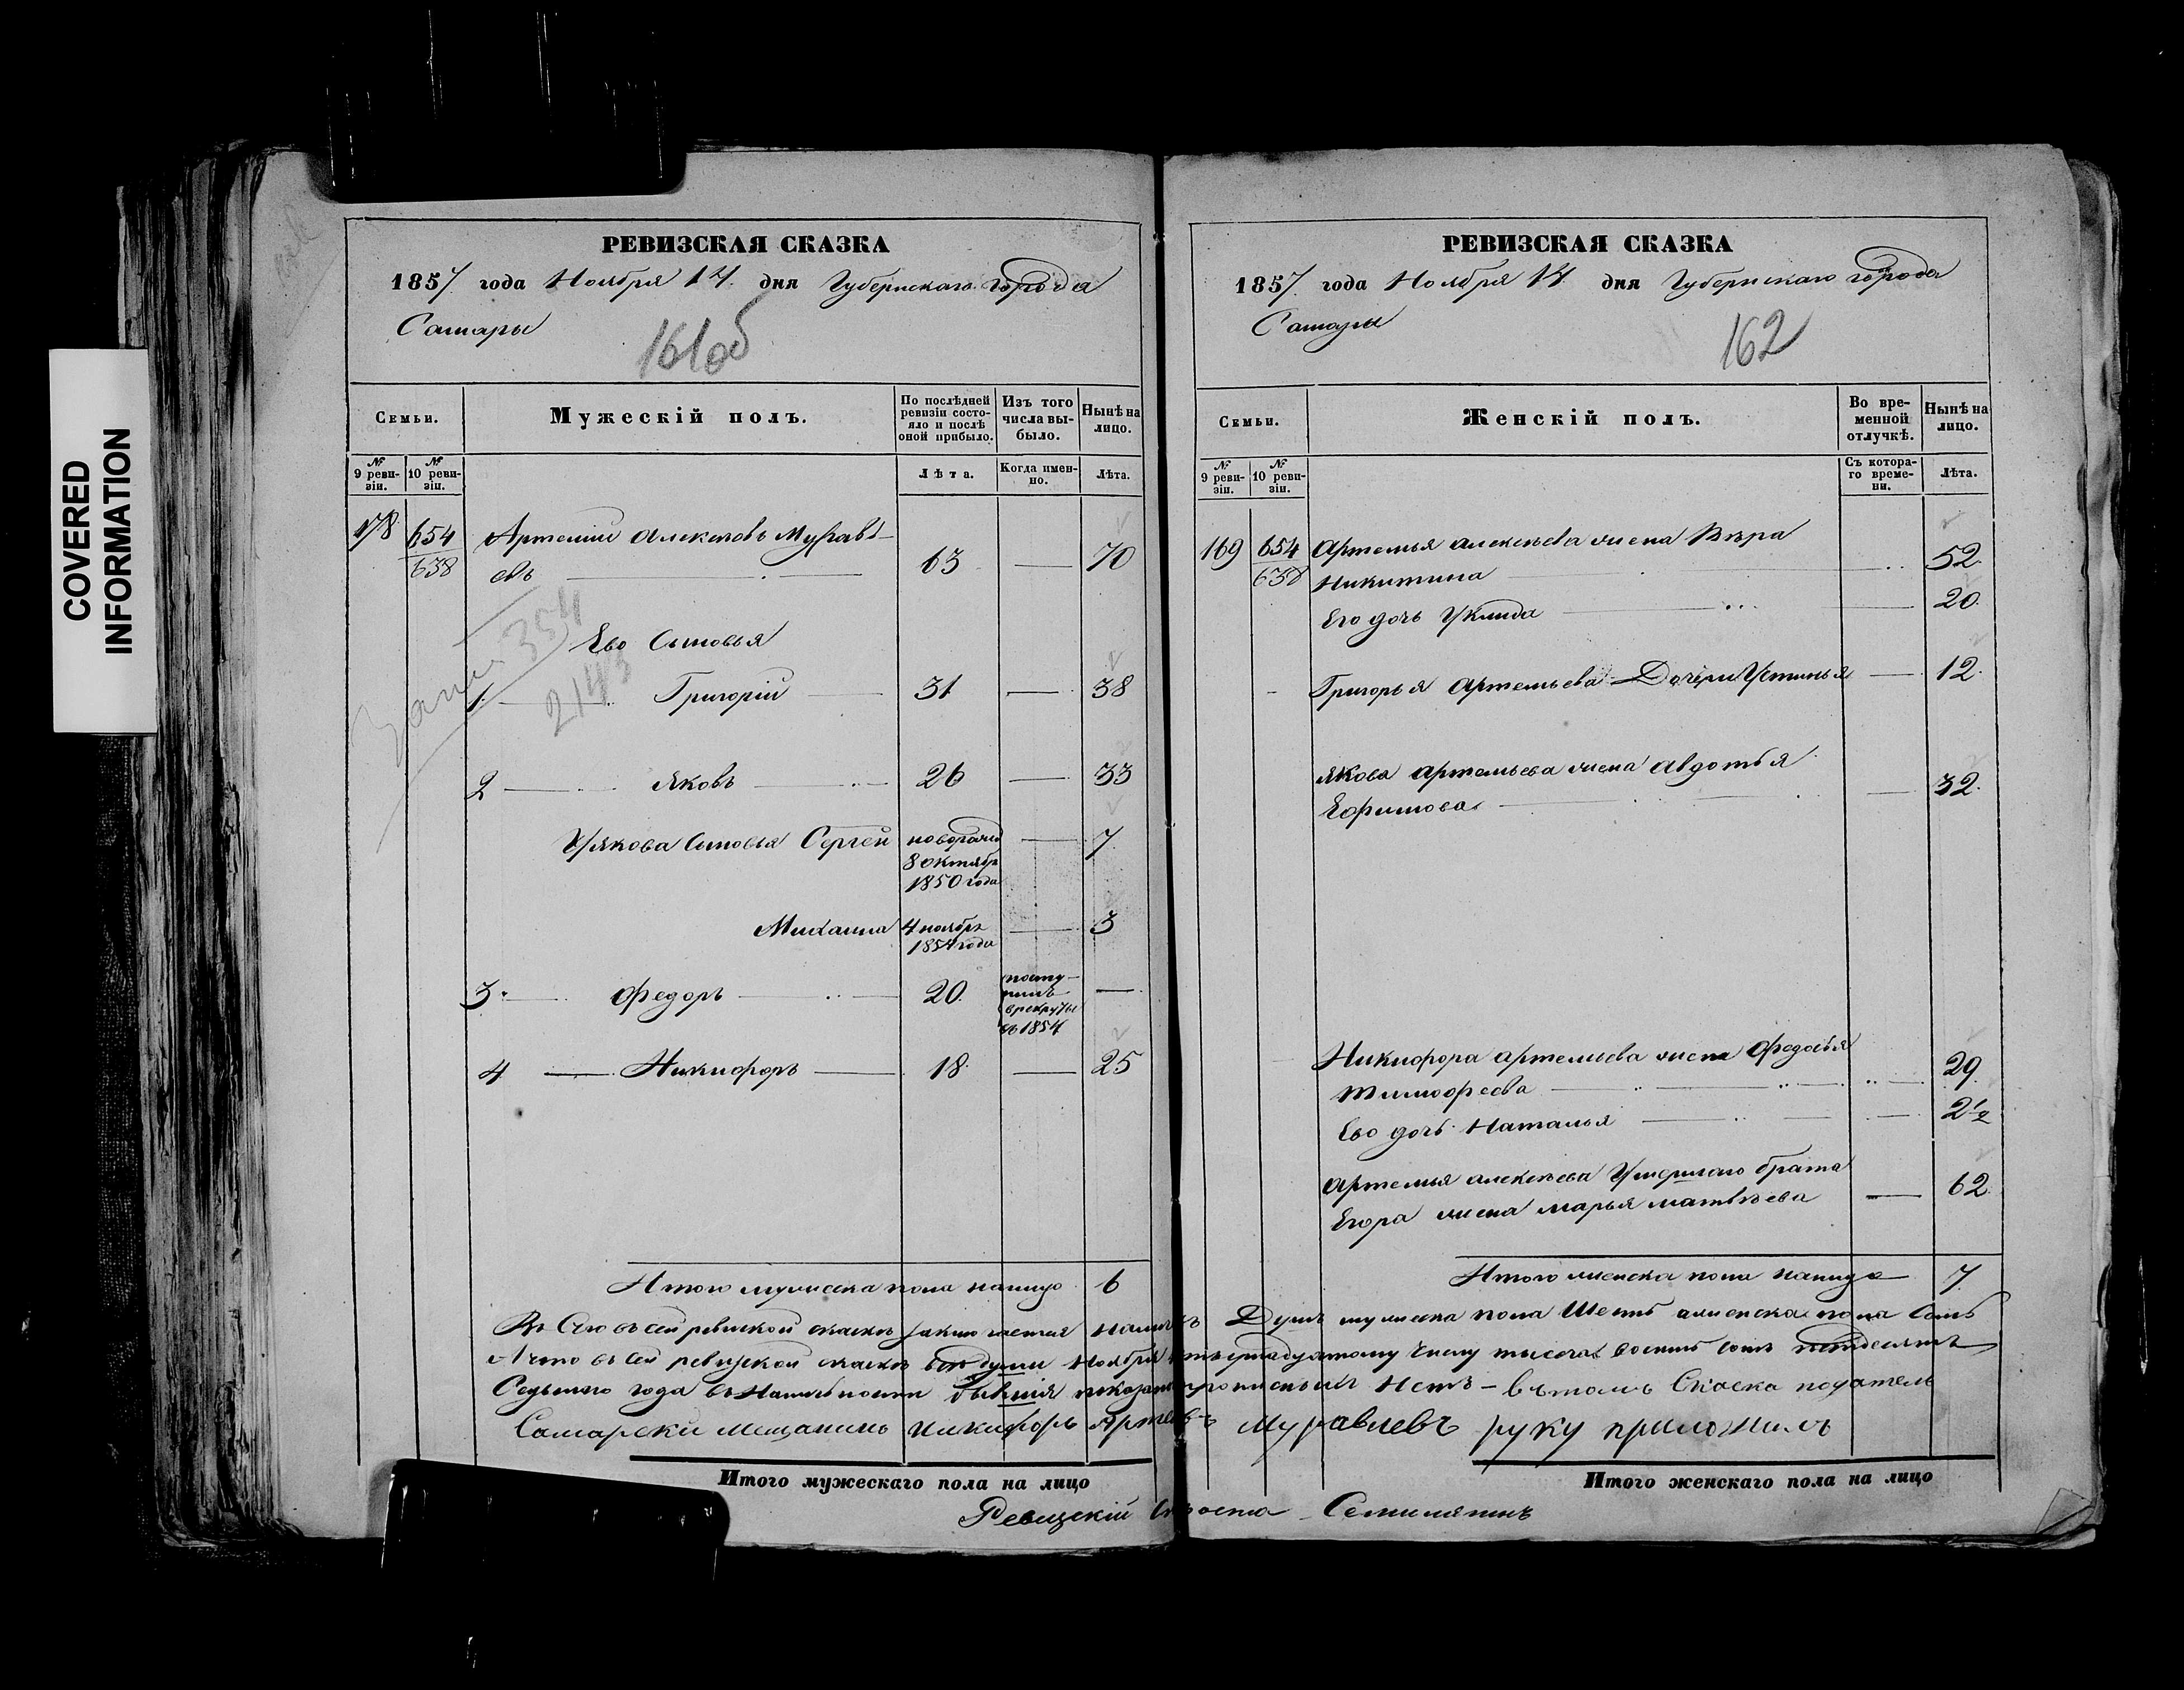 COVERED
INFORMATION
РЕВИЗСКАЯ СКАЗКА
1857 года Ноября 14 дня Губернскаго города
Самары
161об
Семьи.
Мужескій полъ.
По послѣдней ревизіи состояло и послѣ оной прибыло.
Изъ того числа выбыло.
Нынѣ на лицо.
№ 9 ревизіи.
№ 10 ревизіи.
Лѣта.
Когда именно.
Лѣта.
178 654 Артемій Алексеовъ Муравь-
638 евъ 63 — 70
354
2143
Ево Сыновья
1 Григорій 31 — 38
2 Яковъ 26 — 33
У Якова Сыновья Сергей новорожд — 7
8 октябр
1850 года
Михаила 4 ноябрь — 3
1854 года
3 Федоръ 20 посту-
пилъ
в рекруты
въ 1854 —
4 Никифоръ 18 — 25
Итого мужеска пола налицо 6
РЕВИЗСКАЯ СКАЗКА
1857 года Ноября 14 дня Губернскаго города
Самары
162
Семьи.
Женскій полъ.
Во временной отлучкѣ.
Нынѣ на лицо.
№ 9 ревизіи.
№ 10 ревизіи.
Съ котораго времени.
Лѣта.
169 654 Артемья алексеева жена Вѣра
638 Никитина 52
Его дочь Уклида 20
Григорья Артемьева Дочери Устинья — 12
Якова Артемьева жена Авдотья
Ефимова — 32
Никифора артемьева жена Федосья
Тимофеева 29
Ево дочь Наталья — 2 1/2
Артемья алексеева Умершаго брата
Егора жена марья матвѣева — 62
Итого женска пола налицо 7
В Сево в сей ревиской сказкѣ заключается Налицо Душъ мужеска пола Шесть а женска пола Семь
А что в сей ревизской сказкѣ все души Ноября четырнадцатому числу тысяча восемь сотъ пятдесятъ
Седьмого года в Наличности бывшія показаны прописныхъ Нетъ - в томъ Сказка податель
Самарски мещанинъ Никифоръ Артемьевъ Муравлевъ руку приложилъ
Итого мужескаго пола на лицо
Итого женскаго пола на лицо
Ревизскій Староста